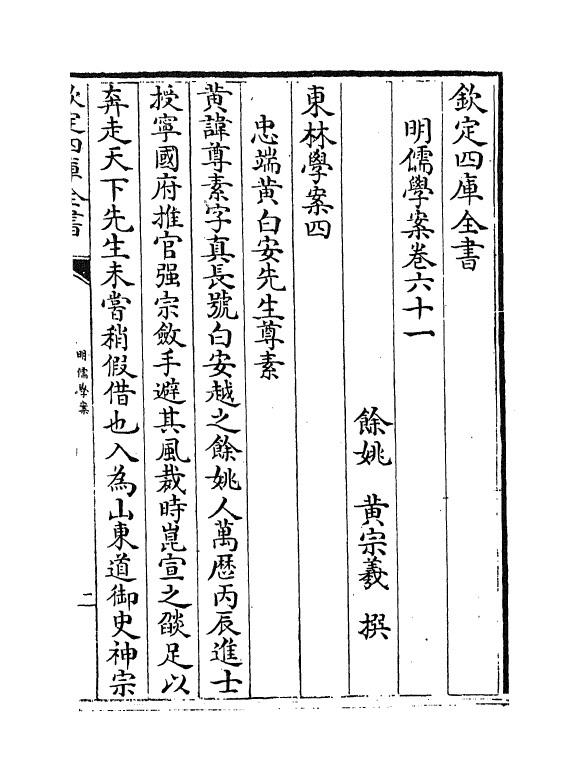 欽定四庫全書
明儒學案卷六十一
餘姚 黃宗羲 撰
東林學案四
忠端黃白安先生尊素
黃諱尊素字真長號白安越之餘姚人萬歴丙辰進士
授寧國府推官强宗斂手避其風裁時崑宣之燄足以
奔走天下先生未嘗稍假借也入為山東道御史神宗
欽定四庫全書
明儒學案
二